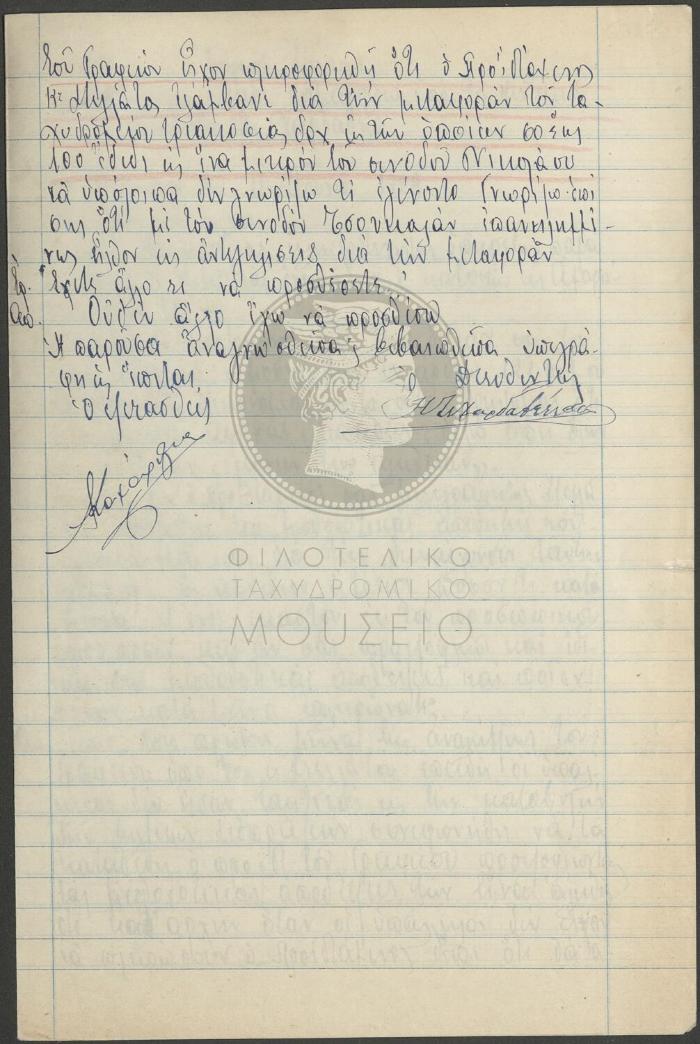 τοῦ Γραφείου εἶχον πληροφορηθῆ ὅτι ὁ Προϊστάμενος
κος ἐλάμβανε διὰ τὴν μεταφορὰν τοῦ τα-
χυδρομείου τριακοσίας δρχ ἐκ τῶν ὁποίων
100 ἔδιδε εἰς ἕνα μικρὸν τοῦ συνοδοῦ Νικολάου
τὰ ὑπόλοιπα δὲν γνωρίζω τί ἐγένοντο Γνωρίζω ἐπί
σης ὅτι μὲ τὸν συνοδὸν ἐπανειλημμέ-
νως ἦλθον εἰς ἀντεγκλίσεις διὰ τὴν μεταφορὰν
Ἐρ. Ἔχετε ἄλλο τι να προσθέσετε;
Απ. Οὐδὲν ἄλλο ἔχω νὰ προσθέσω
Ἡ παροῦσα ἀναγνωσθεῖσα, βεβαιωθεῖσα ὑπεγρά-
φη ὡς ἕπεται
Ὁ ἐξετασθείς
Ὁ Διευθυντής
ΦΙΛΟΤΕΛΙΚΟ
ΤΑΧΥΔΡΟΜΙΚΟ
ΜΟΥΣΕΙΟ